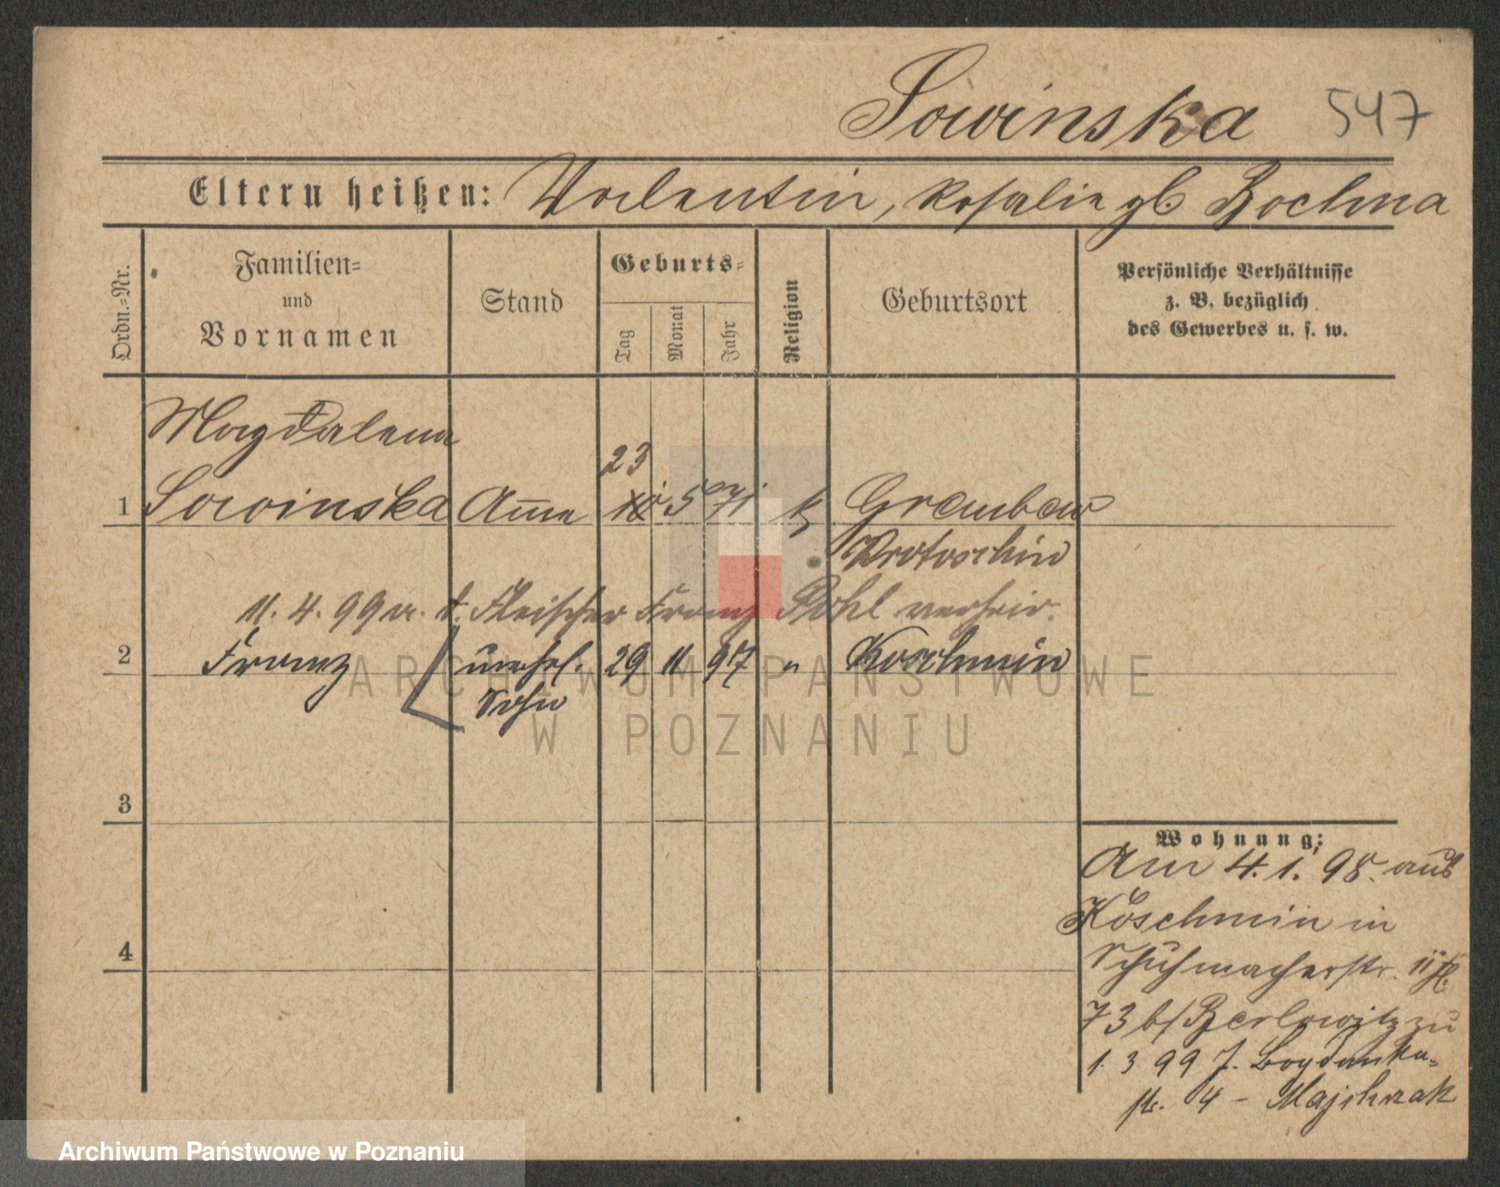 Sowinska 547
Eltern heißen: Valentin, Rosalie gb Bochna
Ordn.-Nr.
Familien-
und
Vornamen
Stand
Geburts-
Tag
Monat
Jahr
Religion
Geburtsort
Persönliche Verhältnisse
z. B. bezüglich
des Gewerbes u. s. w.
Magdalena
23
1 Sowinska Amme 5 71 k Grembow
Krotoschin
11. 4. 99 Fleischer Franz Pohl verheir.
2 Franz unehel. 29 11 97 " Koschmin
Sohn
3
Wohnung:
Am 4. 1. 98. aus
Koschmin in
Schuhmacherstr. 11
73 b/ Berlowitz zu
1. 3 99 J. Bogdanka-
str. 4 - Majchrzak
4
ARCHIWUM PAŃSTWOWE
W POZNANIU
Archiwum Państwowe w Poznaniu